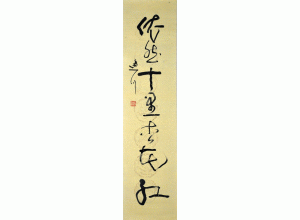 依然十里杏花紅